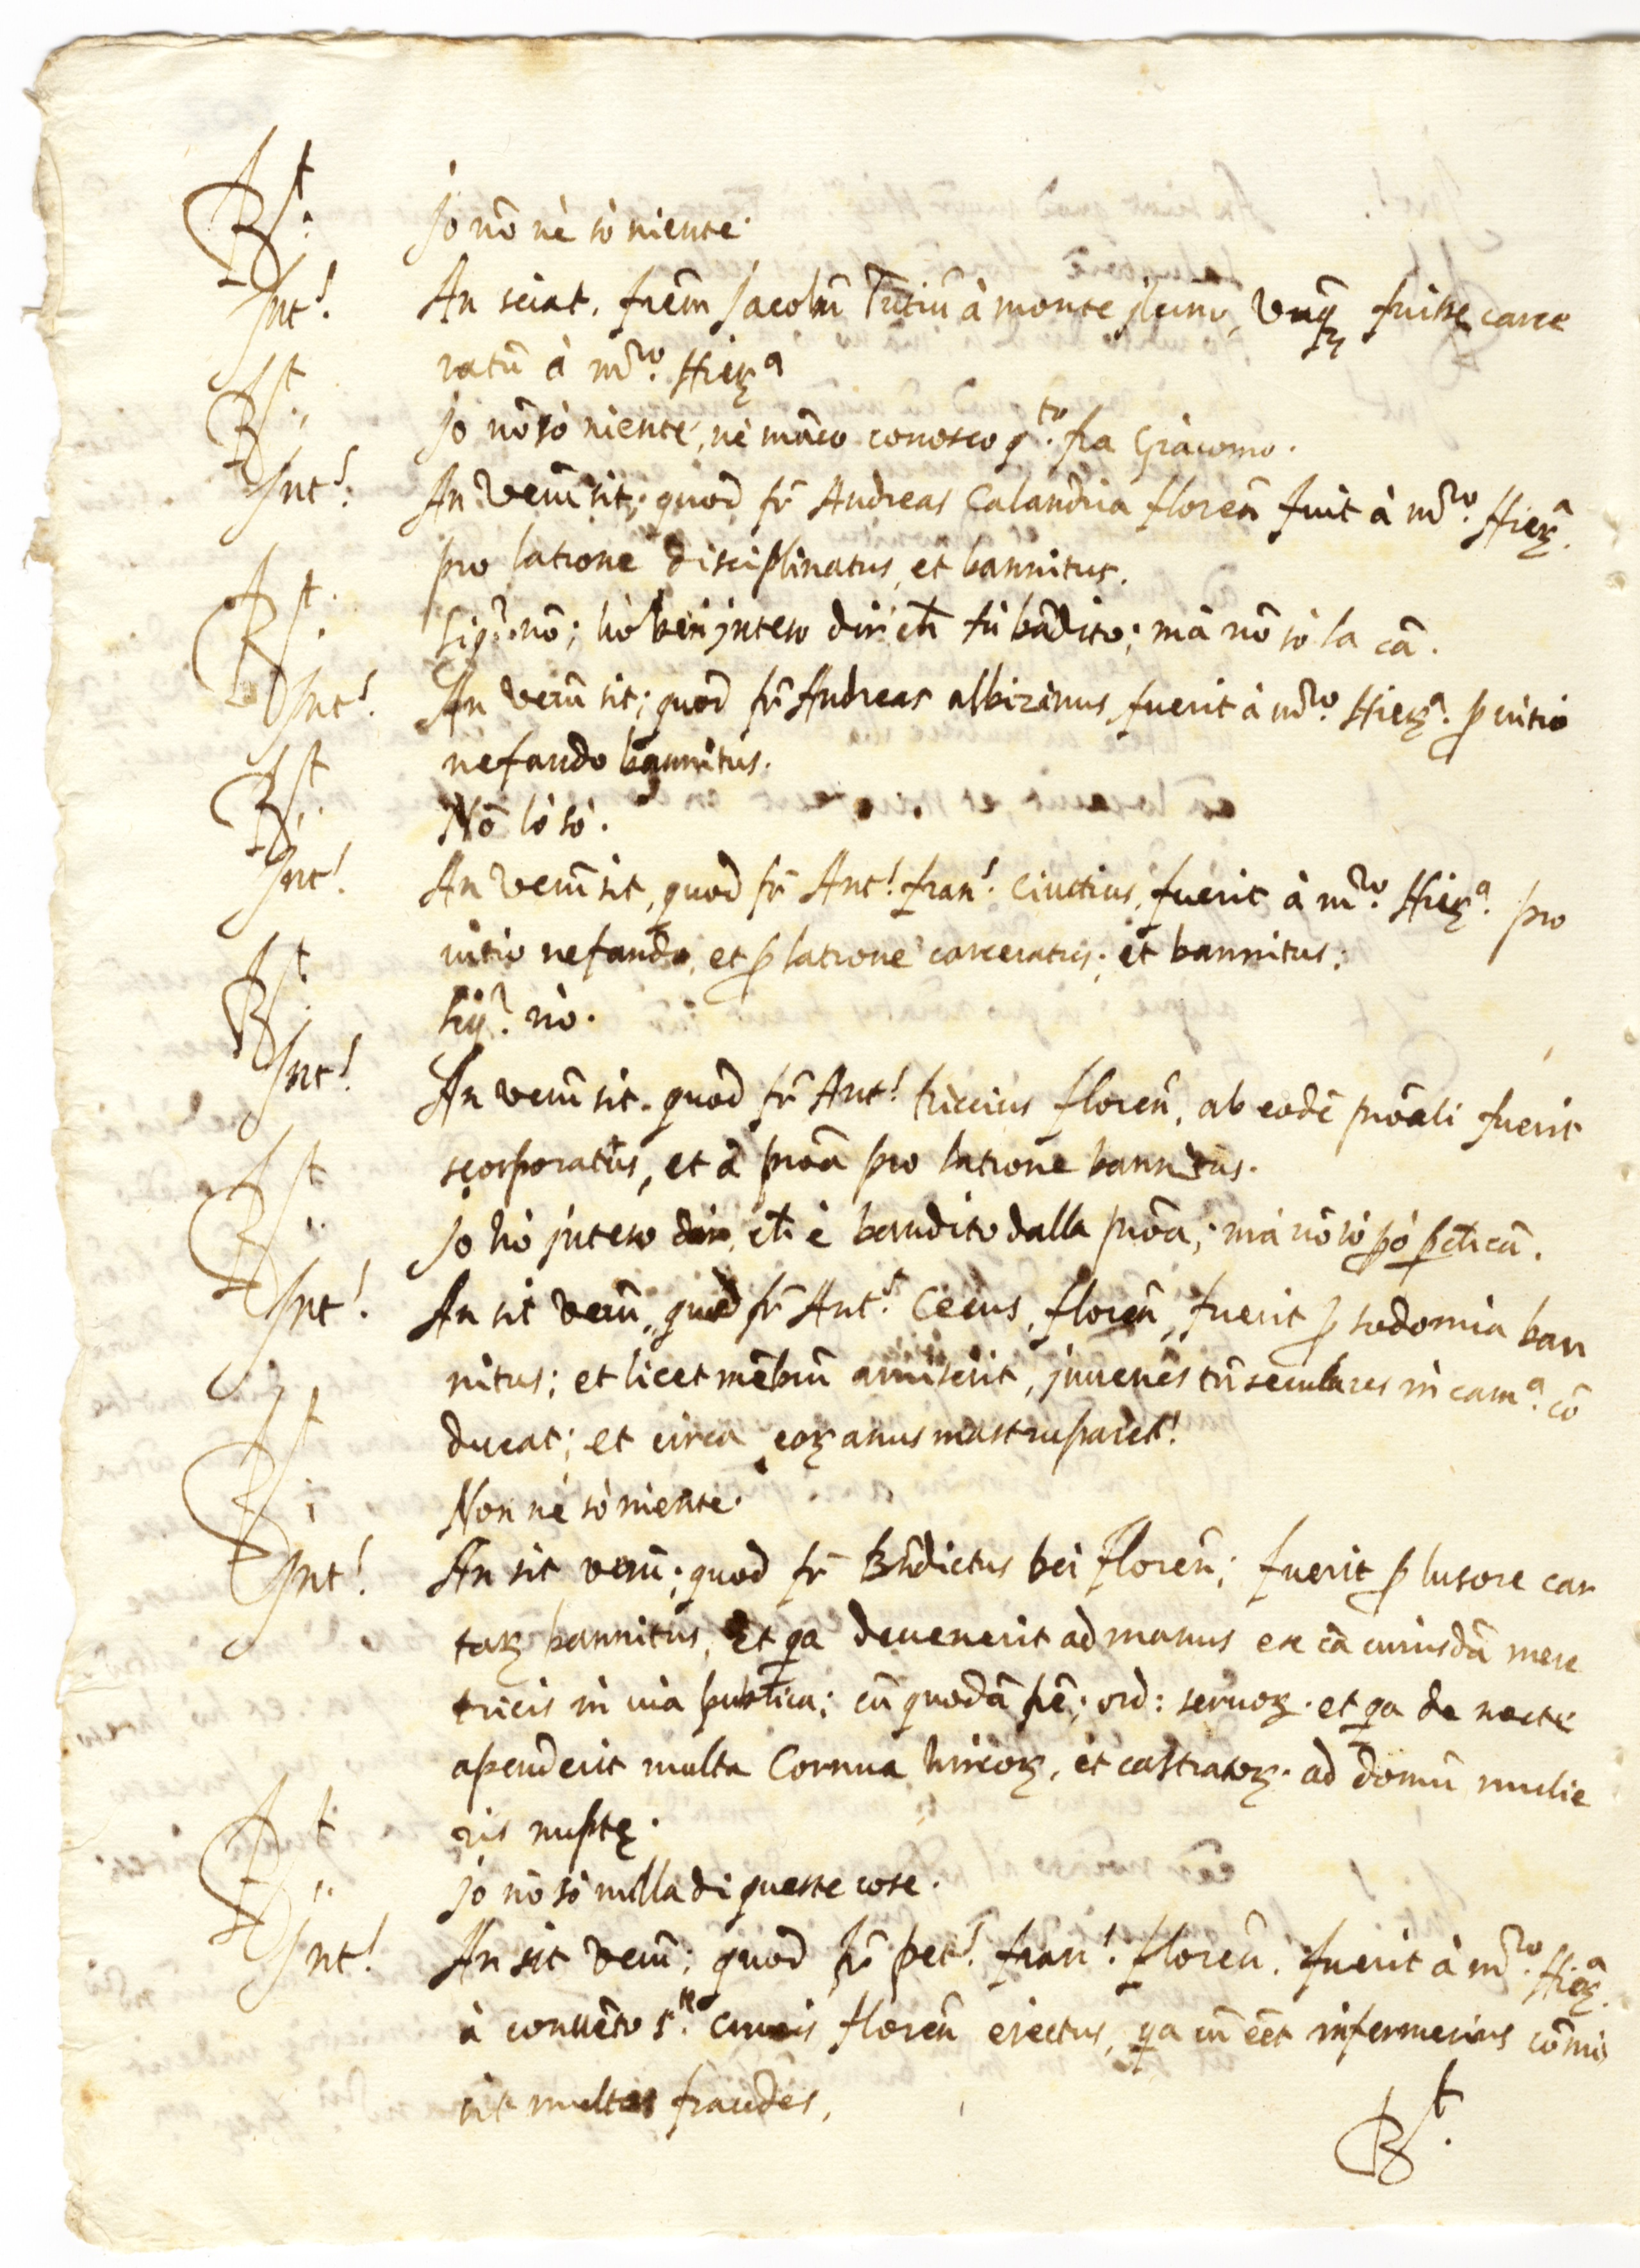 Rt. Jo nõ nè sò niente.
Int! An sciat, frẽm Jacobũ à monte jlcino, Unq̃ fuisse carce
ratũ à mro. Hierᵃ
Rt. Jo nõ sò niente, nè mãco conosco qto. fra Giacomo.
Int! An Verũ sit; quod fr̃ Andreas Calandria florẽn fuit à mro. Hierᵃ.
pro latrone disciplinatus, et bannitus.
Rt. Sigr. nõ; hò ben jnteso dir ch̃ fù bãdito; mà nõ sò la cã.
Int! An verũ sit; quod fr̃ Andreas albizinus fuerit à mro. Hierᵃ. p̱ uitio
nefando bannitus.
Rt. Nõ lò sò.
Int! An Verũ sit, quod fr̃ Ant! fran! Ciuttius, fuerit à mro. Hierᵃ. pro
uitio nefando, et p̱ latrone carceratus; et bannitus;
Rt. Sigr. nò.
Int! An verũ sit. quod fr̃ Ant! Riccius florẽn, ab eodẽ prõali fuerit
scorporatus, et à prõa pro latrone bannitus.
Rt. Jo hò jnteso dire, ch̃ è bandito dalla prõa; mà nõ sò p̱ò p̱ ch̃ cã.
Int! An sit verũ, quod fr̃ Ant! Cecus, florẽn, fuerit p̱ sodomia ban
nitus; et licet mẽbrũ amiserit, juuenes tñ seculares in camᵃ. cõ
ducat; et circa eoꝝ anus mastruparet!
Rt. Non nè sò niente.
Int! An sit verũ; quod fr̃ Bñdictus bei florẽn; fuerit p̱ lusore car
taꝝ bannitus, Et qa deuenerit ad manus ex cã cuiusdã mere
tricis in uia publica; cũ quodã frẽ; ord: seruoꝝ. et qa de nocte
apenderit multa Cornua hircoꝝ, et castratoꝝ. ad domũ mulie
ris nuptę.
Rt. Jo nõ sò nulla di queste cose.
Int! An sit verũ; quod fr̃ pet! fran! florẽn. fuerit à mro. Hierᵃ.
à conuẽto S.te Crucis florẽn eiectus, qa cũ eẽt infermerius cõmis
sit multas fraudes,
Rt.